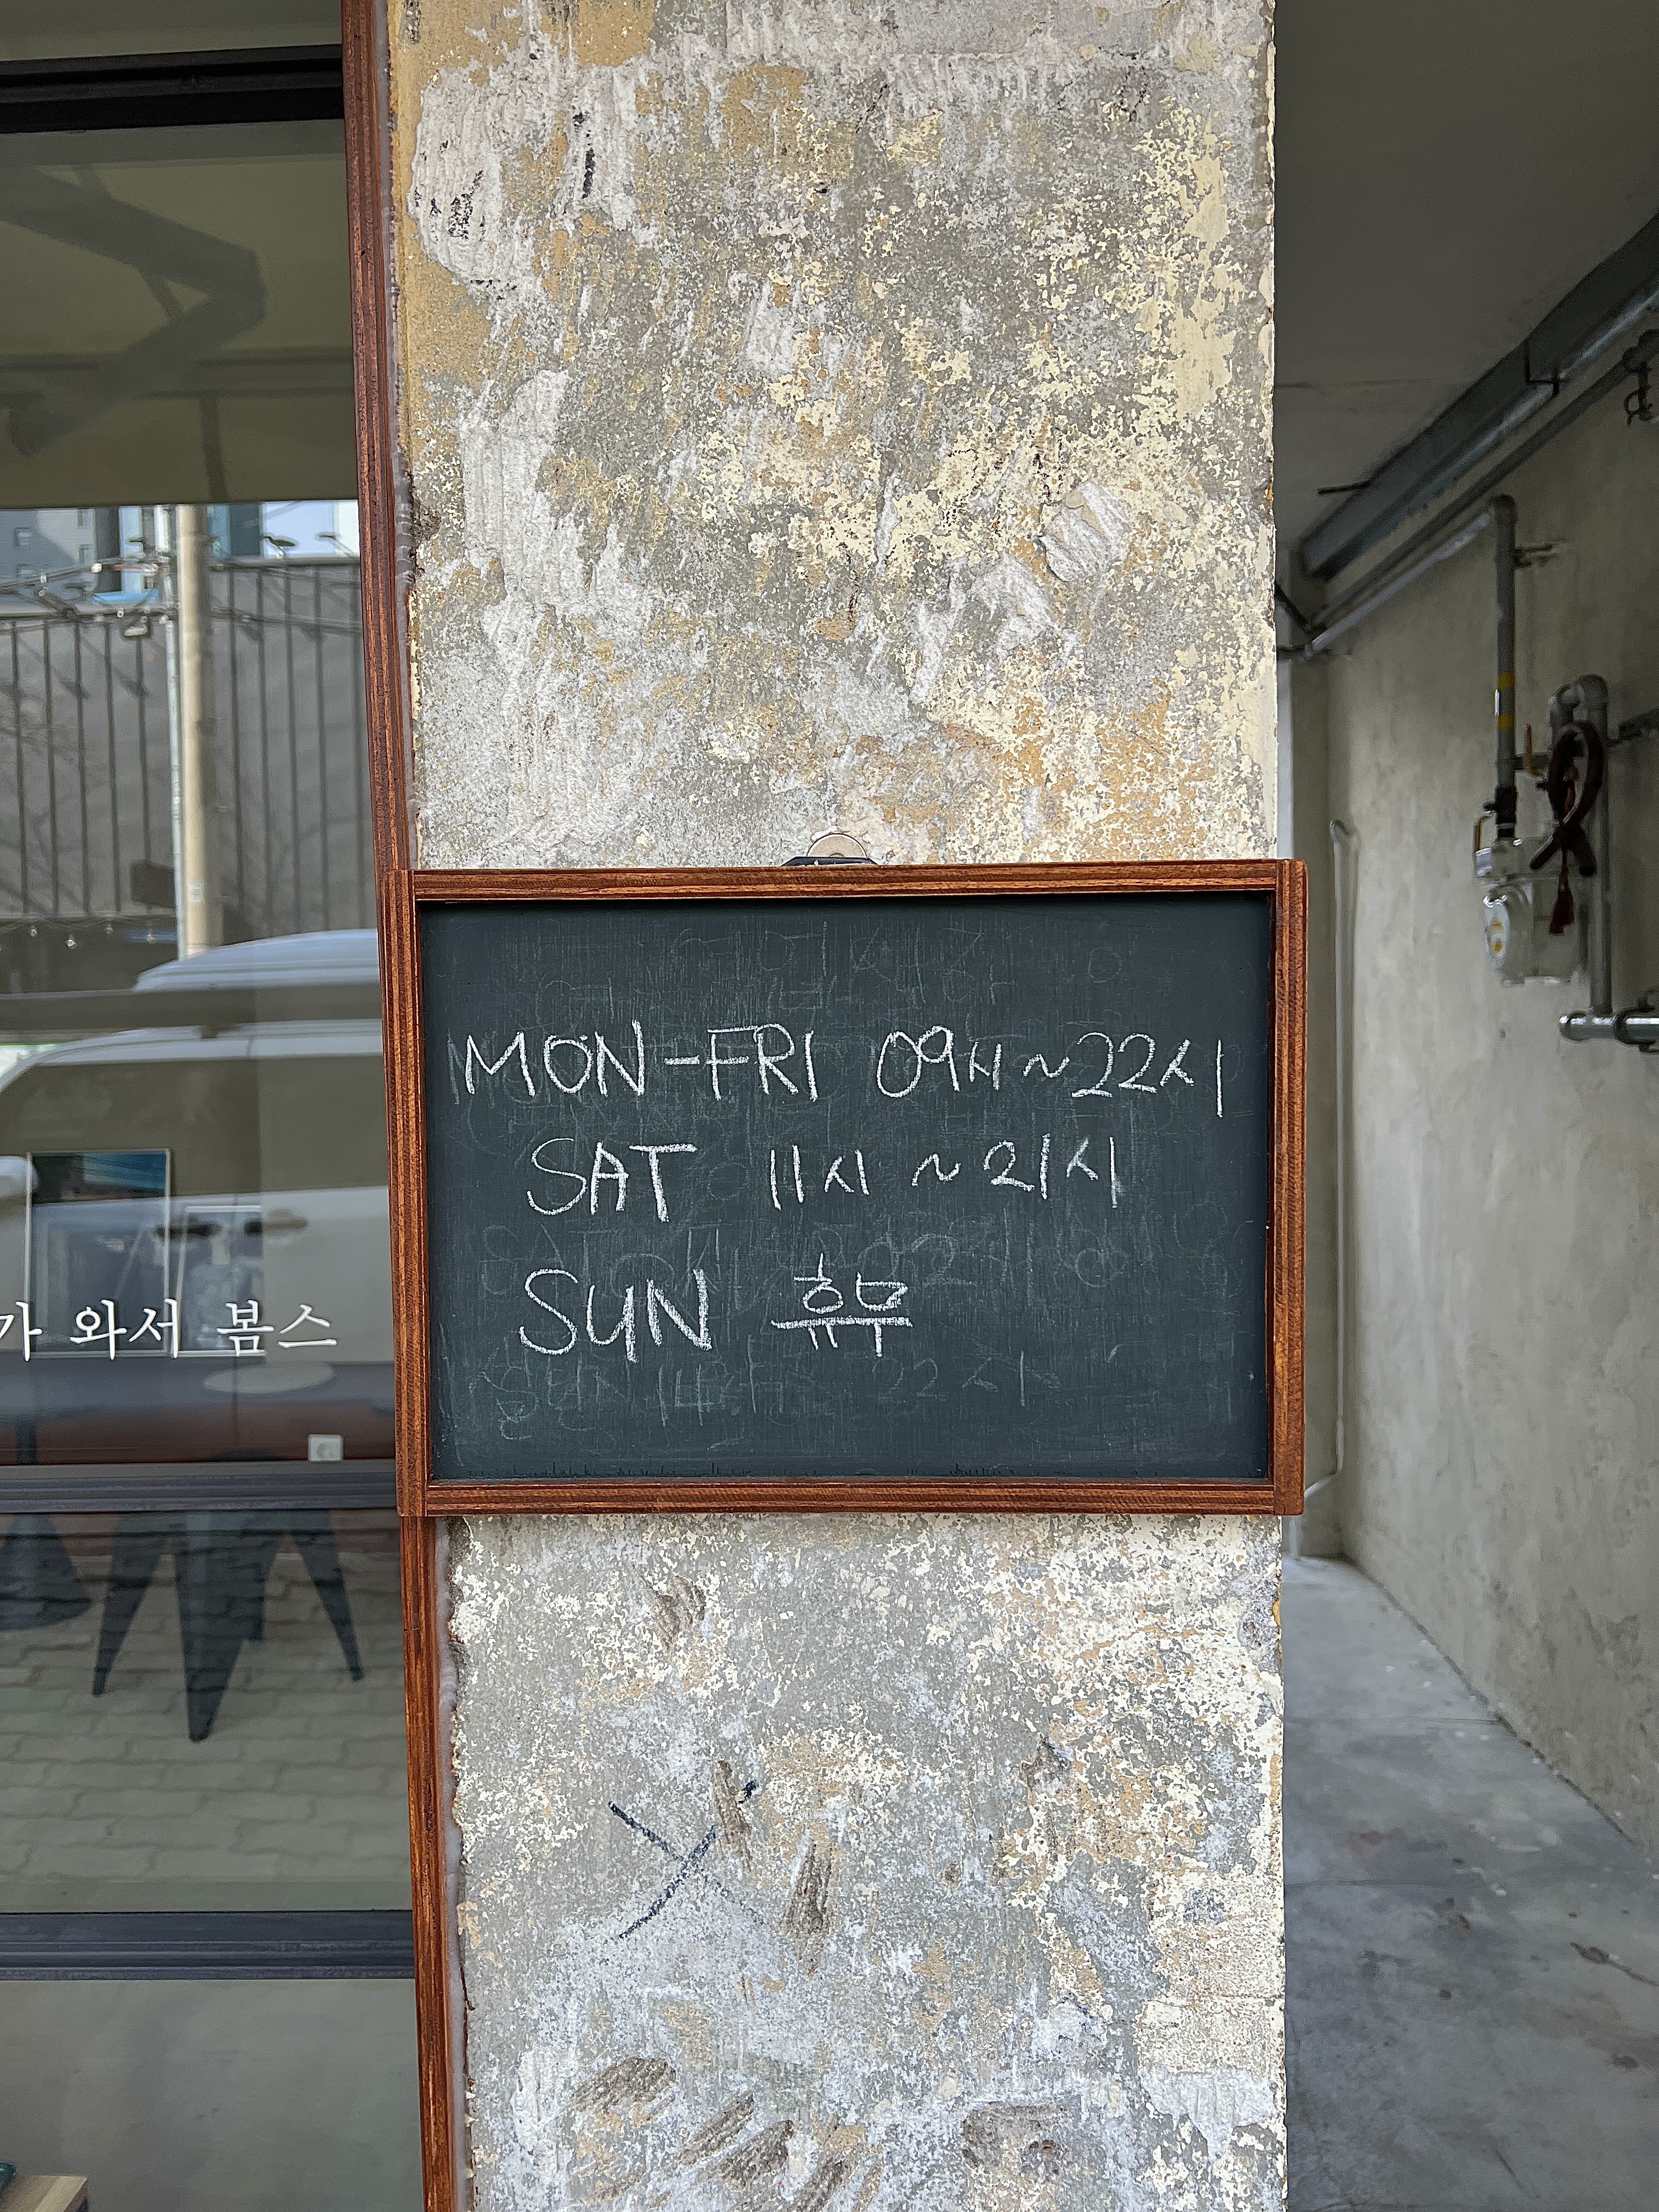 MON-FRI 09시~22시
SAT 11시 ~ 21시
SUN 휴무
가 와서 봄스